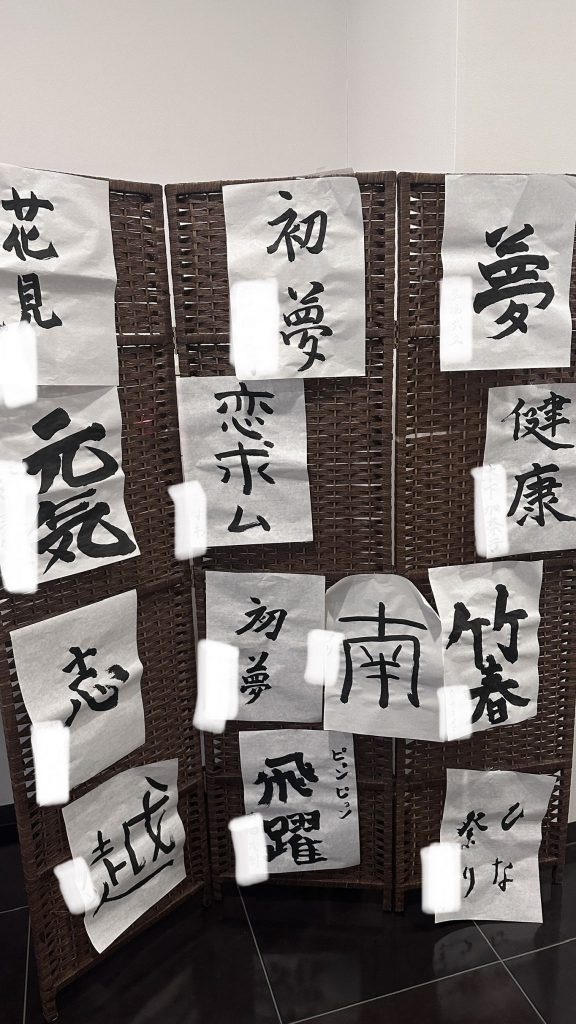 花見
初夢
夢
元気
恋求ム
健康
志
初夢
南
竹春
越
ピョンピョン
飛躍
ひな
祭り